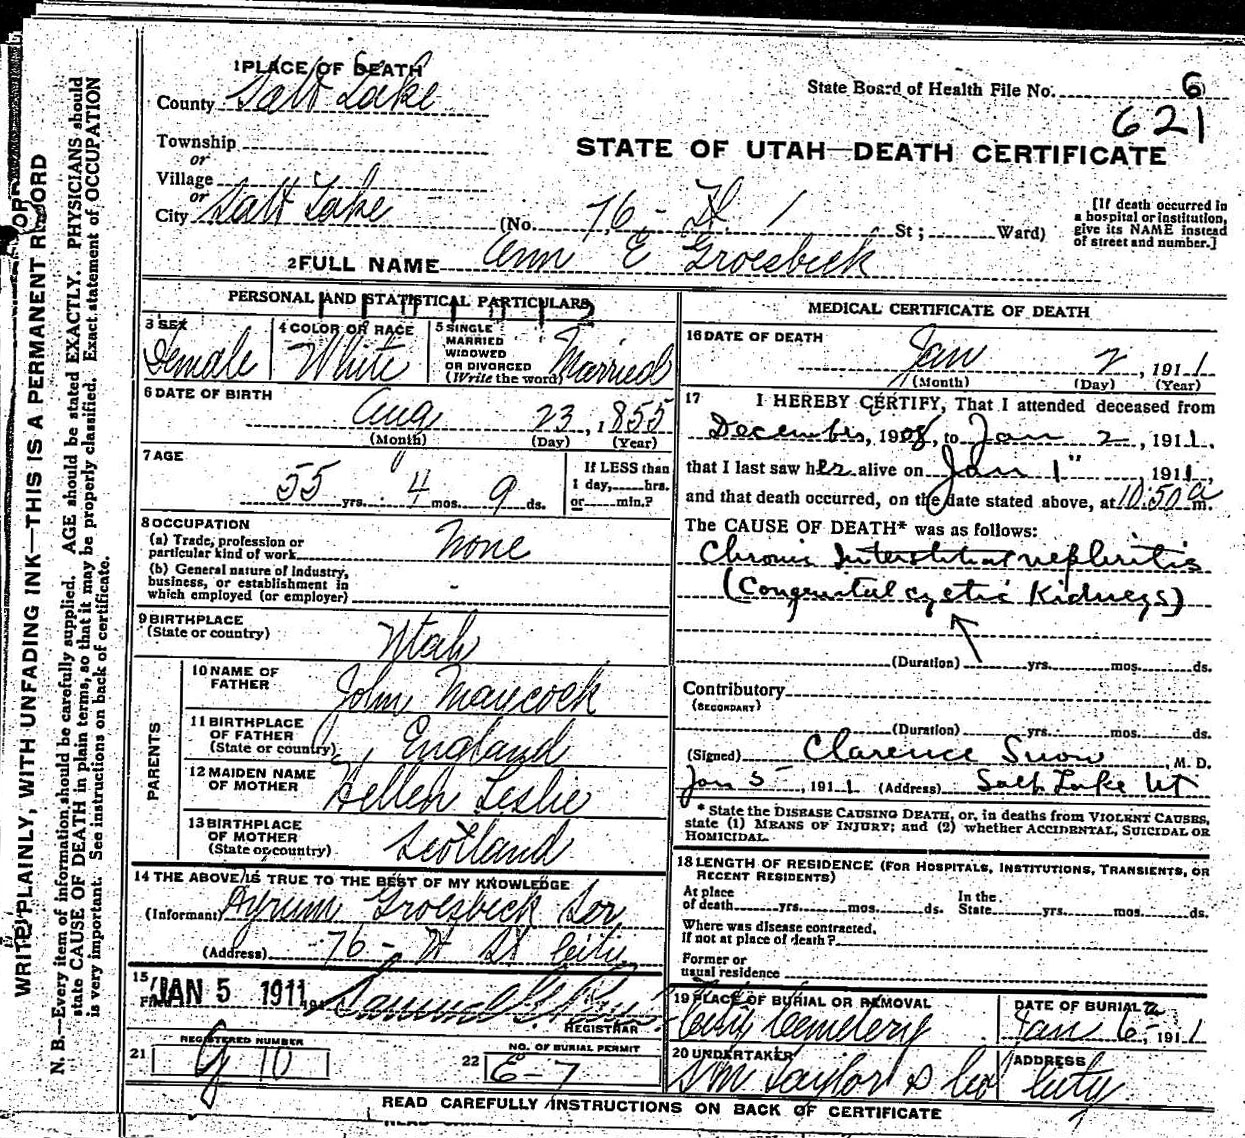 WRITE PLAINLY, WITH UNFADING INK—THIS IS A PERMANENT RECORD
N. B.—Every item of information should be carefully supplied. AGE should be stated EXACTLY. PHYSICIANS should
state CAUSE OF DEATH in plain terms, so that it may be properly classified. Exact statement of OCCUPATION
is very important. See instructions on back of certificate.
1 PLACE OF DEATH
County Salt Lake
State Board of Health File No. 6
621
Township
or
Village
or
City Salt Lake
STATE OF UTAH—DEATH CERTIFICATE
(No. 76 - St; Ward)
[If death occurred in
a hospital or institution,
give its NAME instead
of street and number.]
2 FULL NAME Ann E Groesbeck
PERSONAL AND STATISTICAL PARTICULARS
3 SEX Female
4 COLOR OR RACE White
5 SINGLE
MARRIED
WIDOWED
OR DIVORCED
(Write the word) Married
6 DATE OF BIRTH
Aug 23, 1855
(Month) (Day) (Year)
7 AGE
55 yrs. 4 mos. 9 ds.
If LESS than
1 day, hrs.
or min.?
8 OCCUPATION
(a) Trade, profession or
particular kind of work None
(b) General nature of Industry,
business, or establishment in
which employed (or employer) -
9 BIRTHPLACE
(State or country) Utah
PARENTS
10 NAME OF
FATHER John Maycock
11 BIRTHPLACE
OF FATHER
(State or country) England
12 MAIDEN NAME
OF MOTHER Hellen Leslie
13 BIRTHPLACE
OF MOTHER
(State or country) Scotland
14 THE ABOVE IS TRUE TO THE BEST OF MY KNOWLEDGE
(Informant) Hyrum Groesbeck
(Address) 76 - St City
15
Filed JAN 5 1911
REGISTRAR
21 REGISTERED NUMBER
G 10
22 NO. OF BURIAL PERMIT
6-7
MEDICAL CERTIFICATE OF DEATH
16 DATE OF DEATH
Jan 2, 1911
(Month) (Day) (Year)
17 I HEREBY CERTIFY, That I attended deceased from
December, 1908, to Jan 2, 1911.
that I last saw her alive on Jan 1" 1911,
and that death occurred, on the date stated above, at 10:50 a m.
The CAUSE OF DEATH* was as follows:
Chronic Interstitial nephritis
(Congenital cystic Kidneys)
(Duration) yrs. mos. ds.
Contributory
(SECONDARY)
(Duration) yrs. mos. ds.
(Signed) Clarence Snow, M. D.
Jan 5, 1911 (Address) Salt Lake Ut
* State the DISEASE CAUSING DEATH, or, in deaths from VIOLENT CAUSES,
state (1) MEANS OF INJURY; and (2) whether ACCIDENTAL, SUICIDAL OR
HOMICIDAL.
18 LENGTH OF RESIDENCE (FOR HOSPITALS, INSTITUTIONS, TRANSIENTS, OR
RECENT RESIDENTS)
At place
of death yrs. mos. ds.
In the
State yrs. mos. ds.
Where was disease contracted,
if not at place of death?
Former or
usual residence
19 PLACE OF BURIAL OR REMOVAL
City Cemetery
DATE OF BURIAL
Jan 6, 1911
20 UNDERTAKER
S M Taylor & Co
ADDRESS
City
READ CAREFULLY INSTRUCTIONS ON BACK OF CERTIFICATE